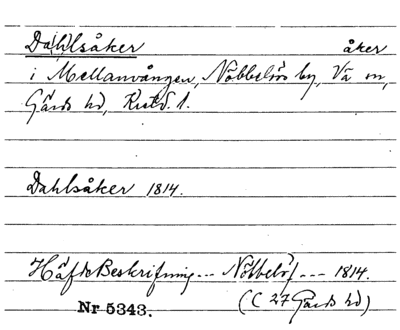 Da(h)lsåker åker
i Mellanvången, Nöbbelövs by, Vä sn,
Gärds hd, Krist. l.
Dahlsåker 1814.
Häfde Beskrifning... Nöbbelöf --- 1814.
Nr 5343. (C 27 Gärds hd)